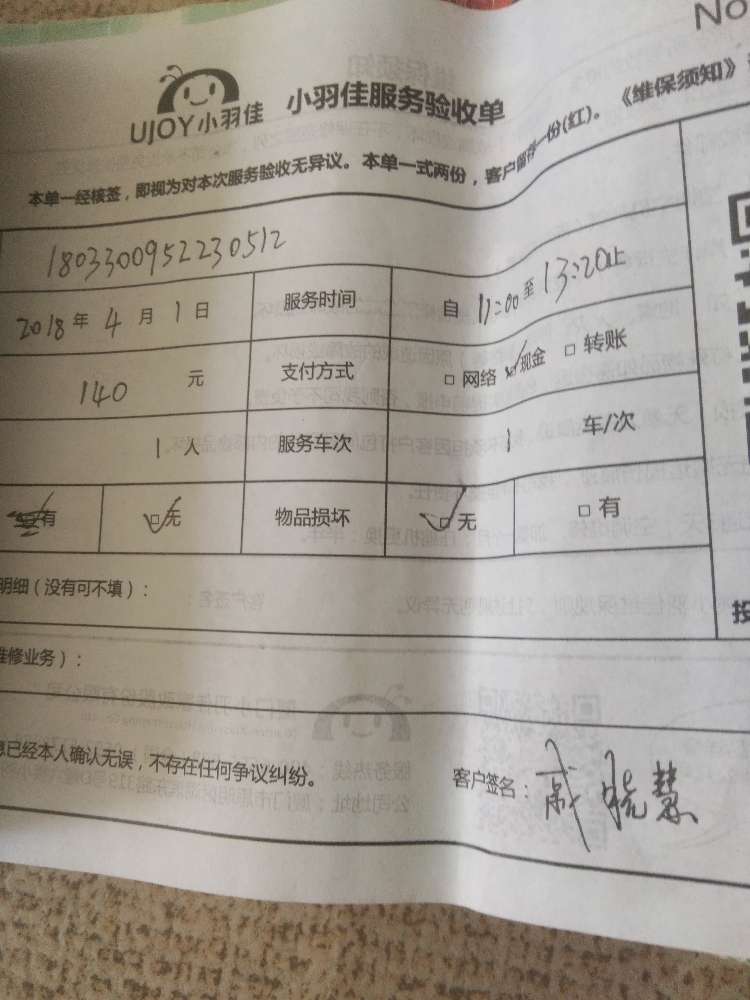 No
UJOY小羽佳 小羽佳服务验收单
本单一经核签，即视为对本次服务验收无异议。本单一式两份，客户留存一份(红)。《维保须知》
1803300952230512
2018年4月1日 服务时间 自11:00至13:20止
140元 支付方式 □网络 ☑现金 □转账
1人 服务车次 1车/次
有 ☑无 物品损坏 ☑无 □有
明细（没有可不填）：
维修业务）：
投
息已经本人确认无误，不存在任何争议纠纷。 客户签名：戚晓慧